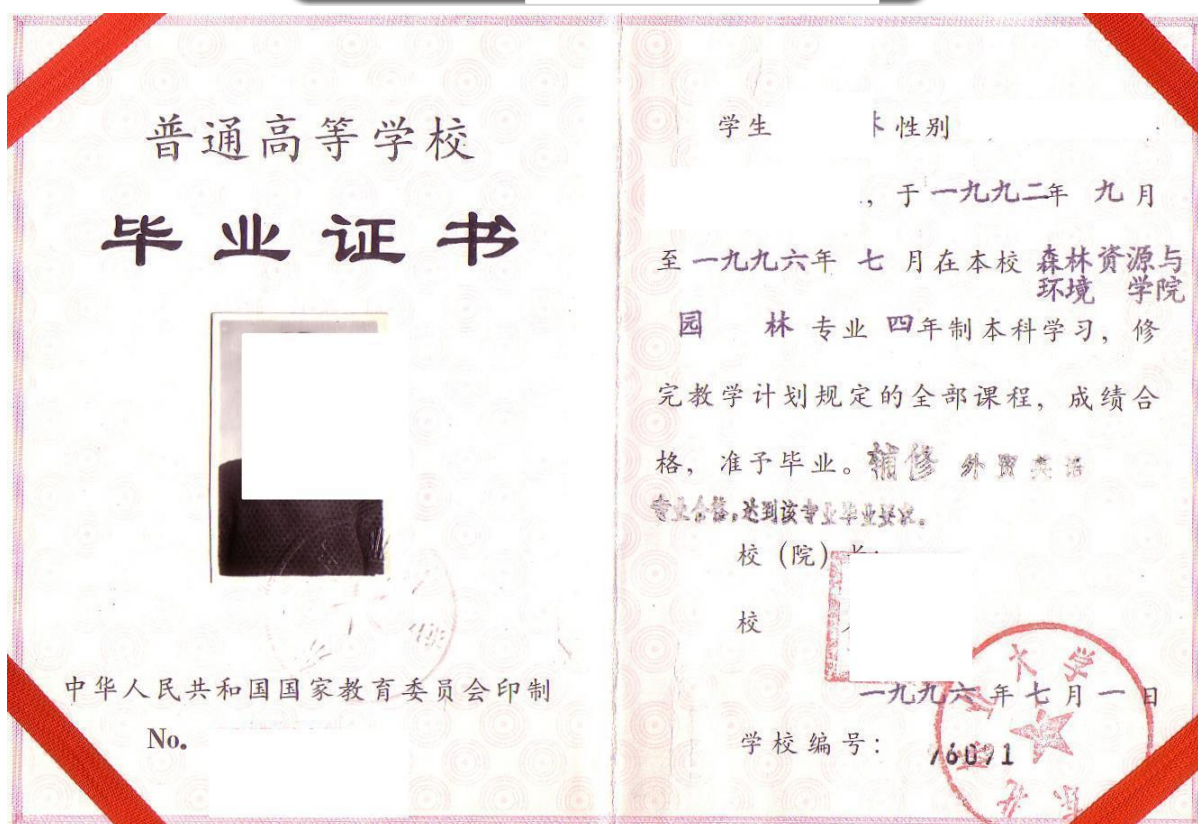 普通高等学校
毕业证书
中华人民共和国国家教育委员会印制
No.
学生 性别
，于一九九二年 九月
至一九九六年 七 月在本校 森林资源与
环境 学院
园 林 专业 四年制本科学习，修
完教学计划规定的全部课程，成绩合
格，准予毕业。辅修 外贸英语
专业合格，达到该专业毕业要求。
校（院）长：
校
一九九六年七月一日
学校编号： 76091
大学